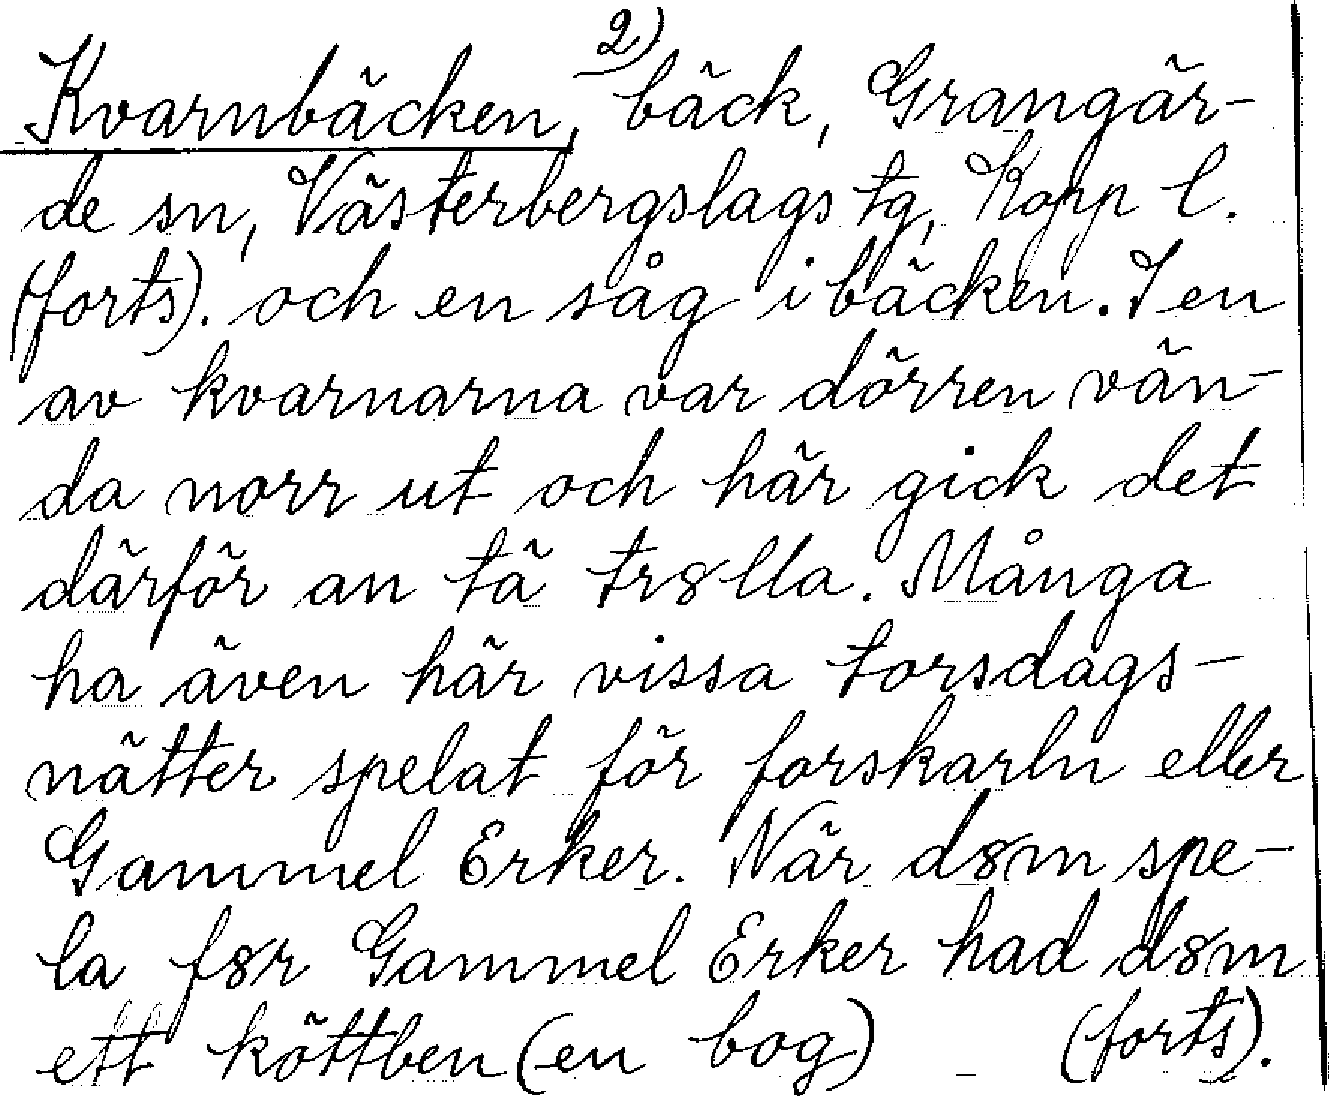 2)
Kvarnbäcken, bäck, Grangär-
de sn, Västerbergslags tg, Kopp l.
(forts). och en såg i bäcken. I en
av kvarnarna var dörren vän-
da norr ut och här gick det
därför an tä tr8lla. Många
ha även här vissa torsdags-
nätter spelat för forskarln eller
Gammel Erker. När d8m spe-
la f8r Gammel Erker had d8m
ett köttben (en bog) (forts).